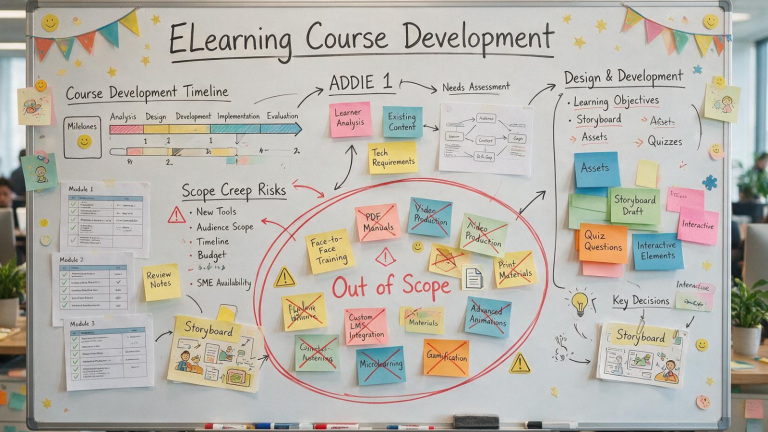 ELearning Course Development
Course Development Timeline
Analysis Design Development Implementation Evaluation
Milelones
1 1 1
ADDIE 1
Needs Assessment
Learner
Analysis
Existing
Content
Tech
Requirements
Design & Development
• Learning Objectives
• Storyboard
→ Assets
→ Assets
→ Quizzes
Assets
Storyboard
Draft
Quiz
Questions
Interactive
Elements
Interactive
Module 1
Module 2
Module 3
Review
Notes
Storyboard
Scope Creep Risks
• New Tools
• Audience Scope
• Timeline
• Budget
• SME Availability
Out of Scope
PDF
Manuals
Video
Production
Video
Production
Face-to
Face
Training
Print
Materials
Custom
LMS
Integration
Materials
Advanced
Animations
Microlearning
Gamification
Key Decisions
Interactive
Storyboard